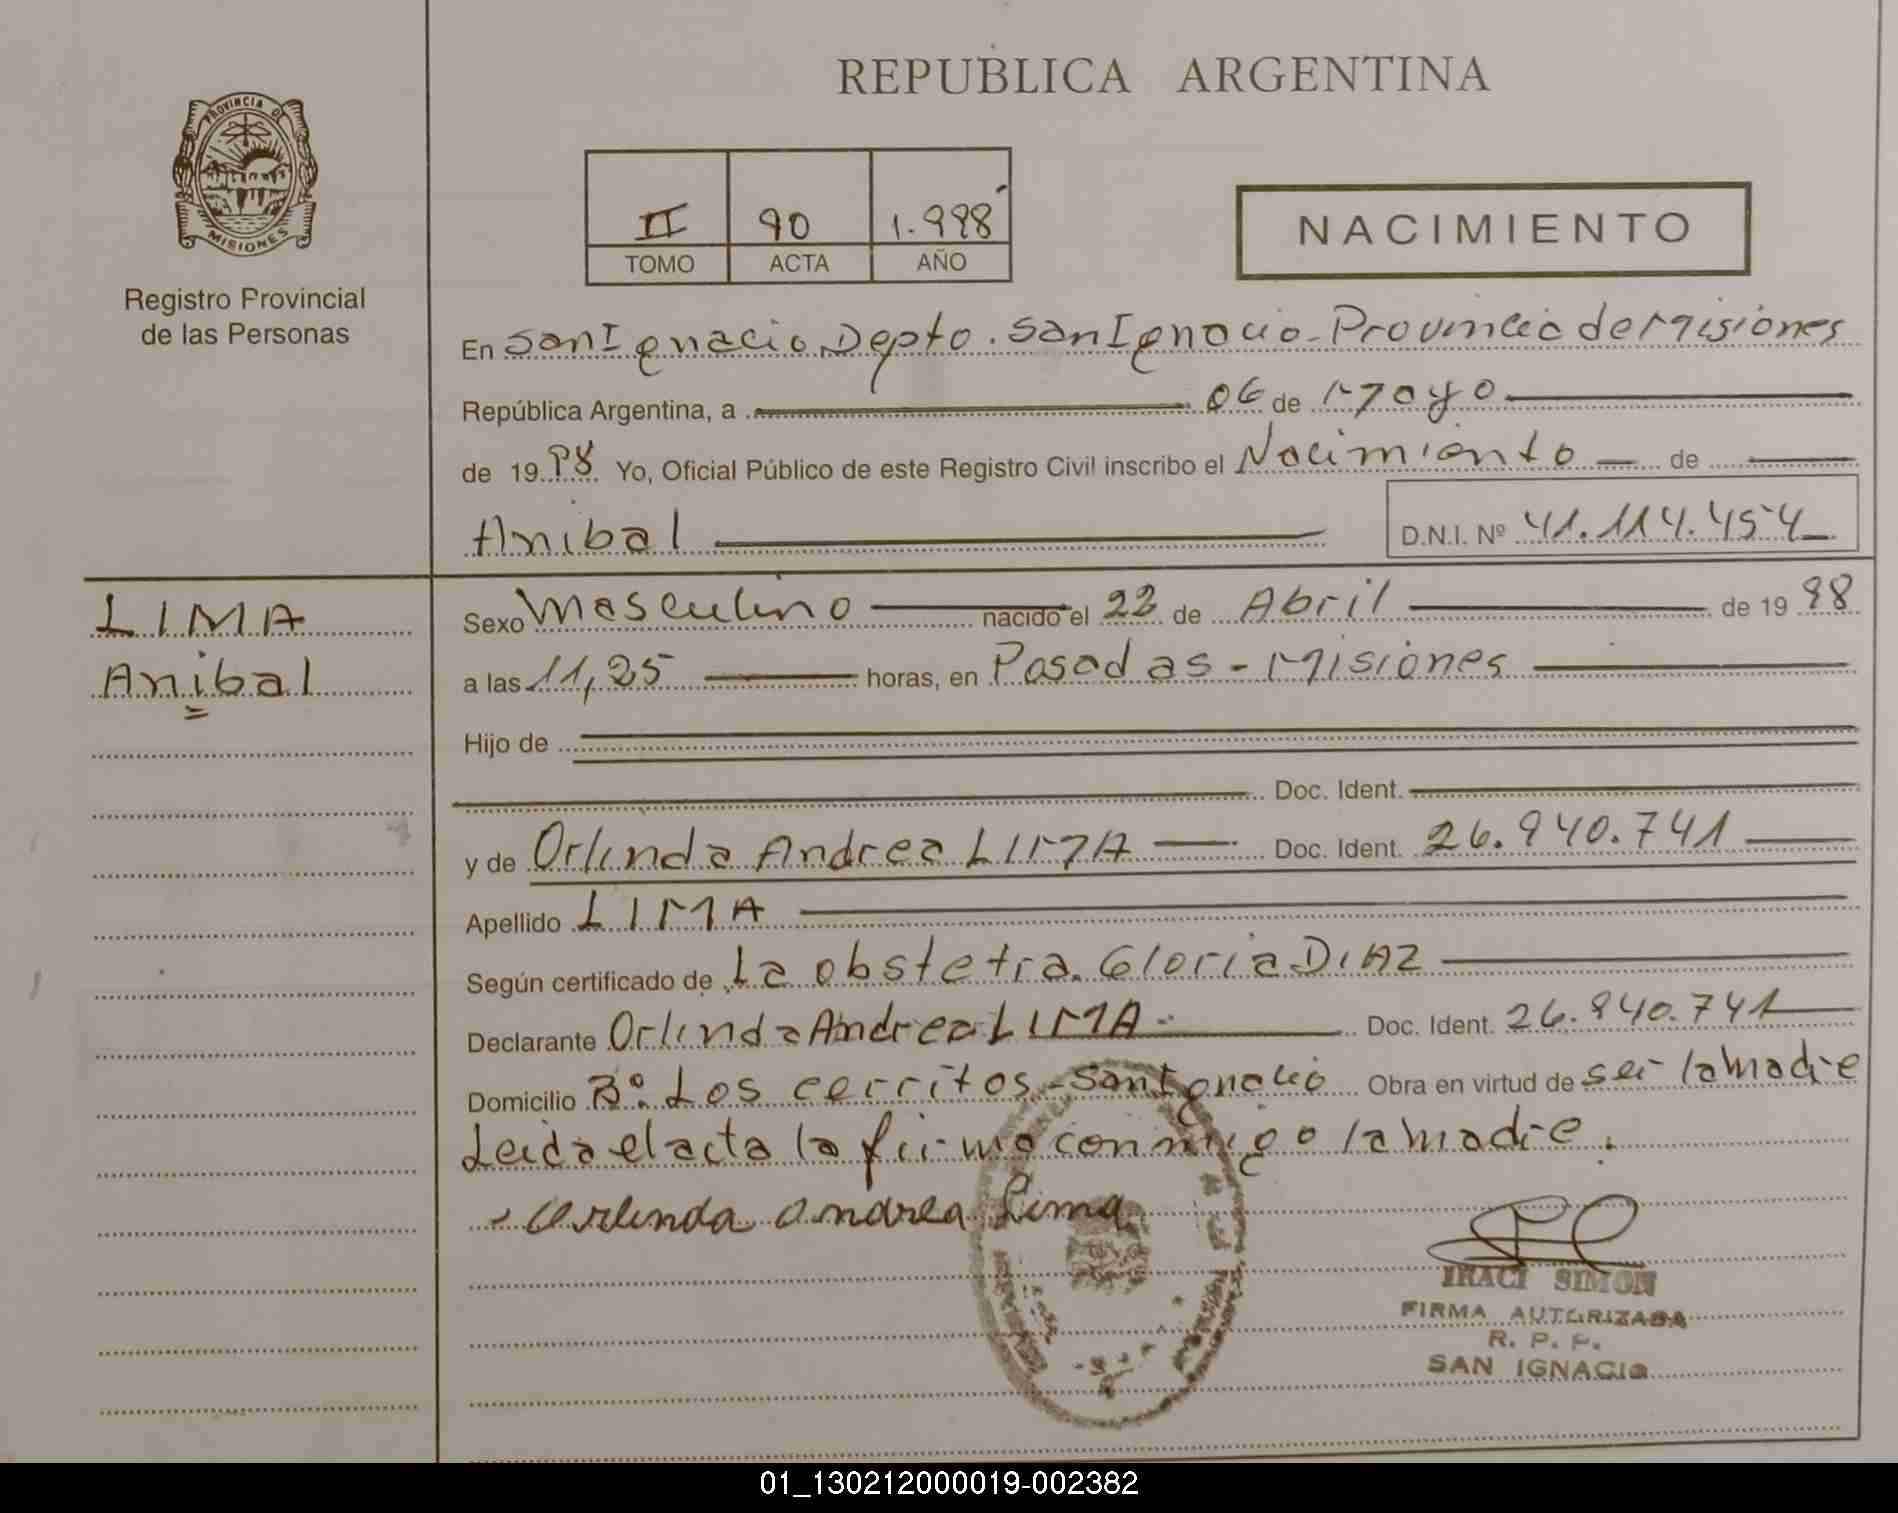 REPUBLICA ARGENTINA
PROVINCIA DE
MISIONES
Registro Provincial
de las Personas
II 90 1.998
TOMO ACTA AÑO
NACIMIENTO
En San Ignacio, Depto. San Ignacio - Provincia de Misiones
República Argentina, a 06 de Mayo
de 19 98 Yo, Oficial Público de este Registro Civil inscribo el Nacimiento de
Anibal D.N.I. Nº 41.114.454
LIMA
Anibal
Sexo Masculino nacido el 22 de Abril de 19 98
a las 11,25 horas, en Posadas - Misiones
Hijo de
Doc. Ident.
y de Orlinda Andrea LIMA Doc. Ident. 26.940.741
Apellido LIMA
Según certificado de La obstetra. Gloria DIAZ
Declarante Orlinda Andrea LIMA Doc. Ident. 26.940.741
Domicilio Bº. Los cerritos - San Ignacio Obra en virtud de ser la madre
Leida el acta la firma conmigo la madre.
Orlinda Andrea Lima
IRACI SIMON
FIRMA AUTORIZADA
R. P. P.
SAN IGNACIO
01_130212000019-002382